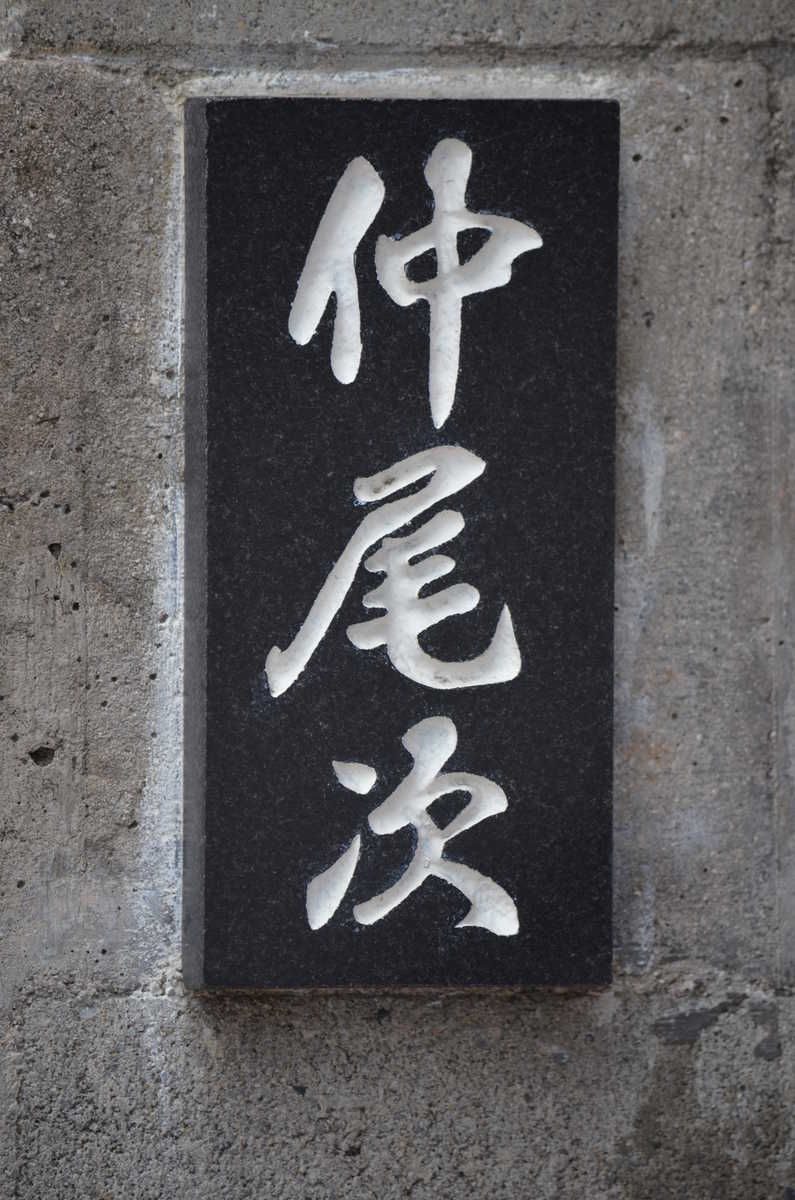 仲尾次